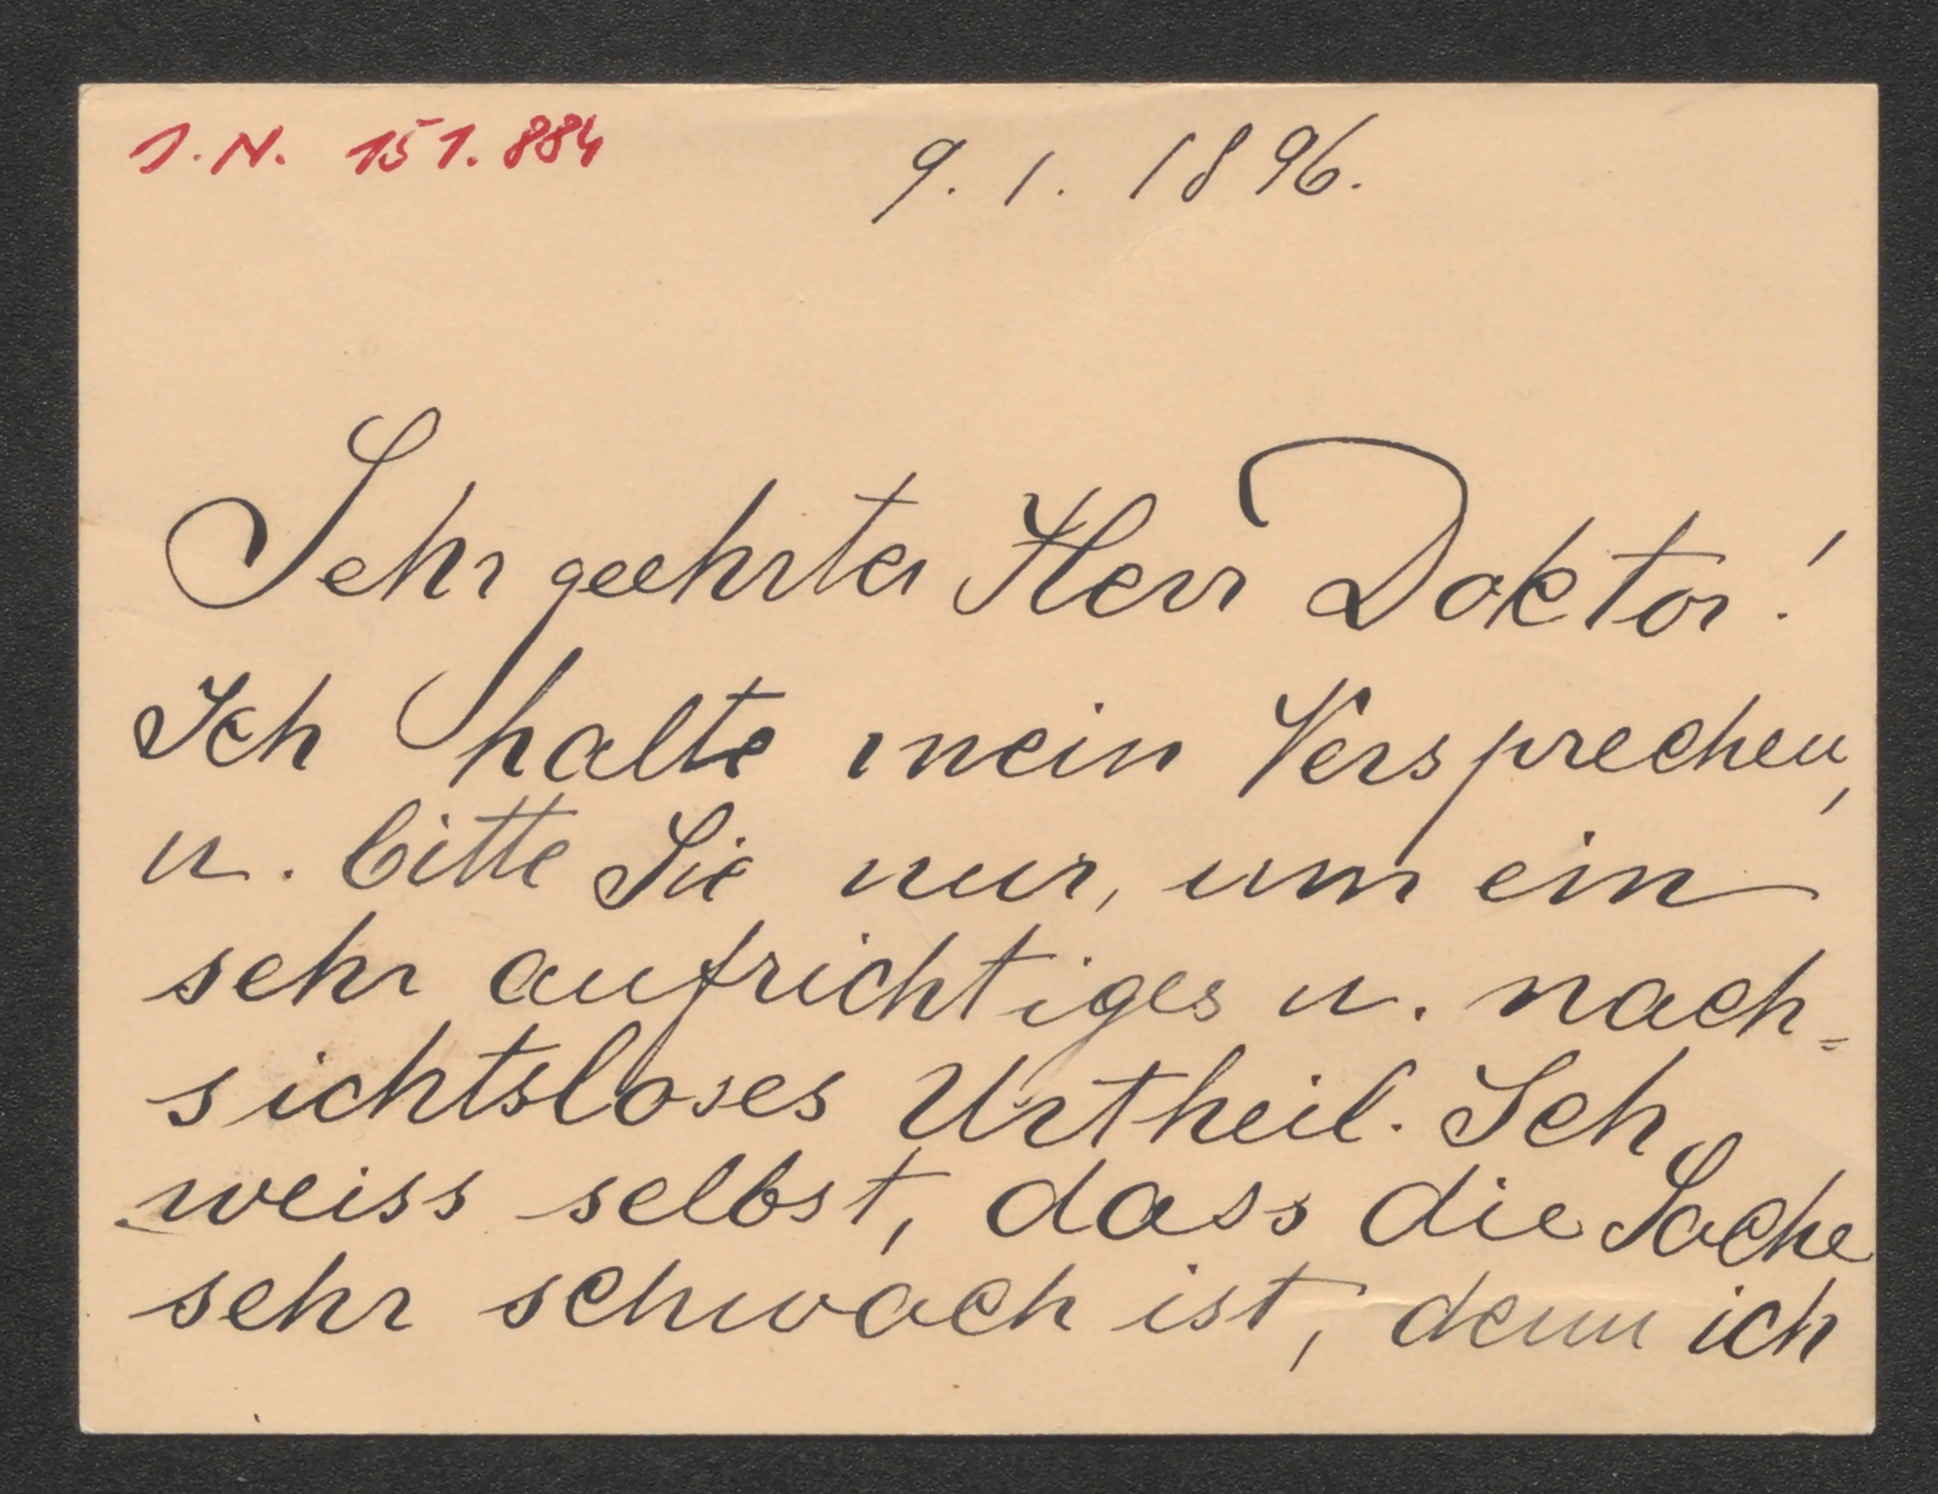 J. N. 151.884
9. 1. 1896.
Sehr geehrter Herr Doktor!
Ich halte mein Versprechen,
u. bitte Sie nur, um ein
sehr aufrichtiges u. nach=
sichtsloses Urtheil. Ich
weiss selbst, dass die Sache
sehr schwach ist, denn ich